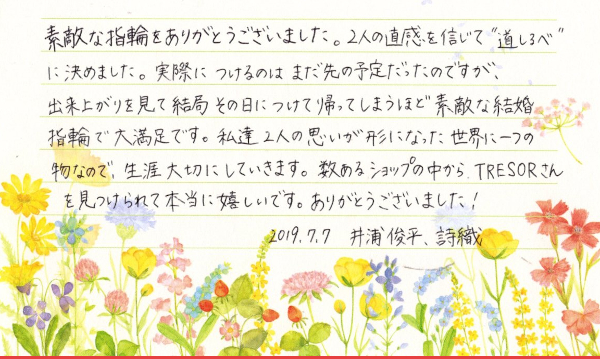 素敵な指輪をありがとうございました。2人の直感を信じて"道しるべ"
に決めました。実際につけるのはまだ先の予定だったのですが、
出来上がりを見て結局その日につけて帰ってしまうほど素敵な結婚
指輪で大満足です。私達2人の思いが形になった世界に一つの
物なので、生涯大切にしていきます。数あるショップの中から、TRESORさん
を見つけられて本当に嬉しいです。ありがとうございました!
2019.7.7 井浦俊平、詩織